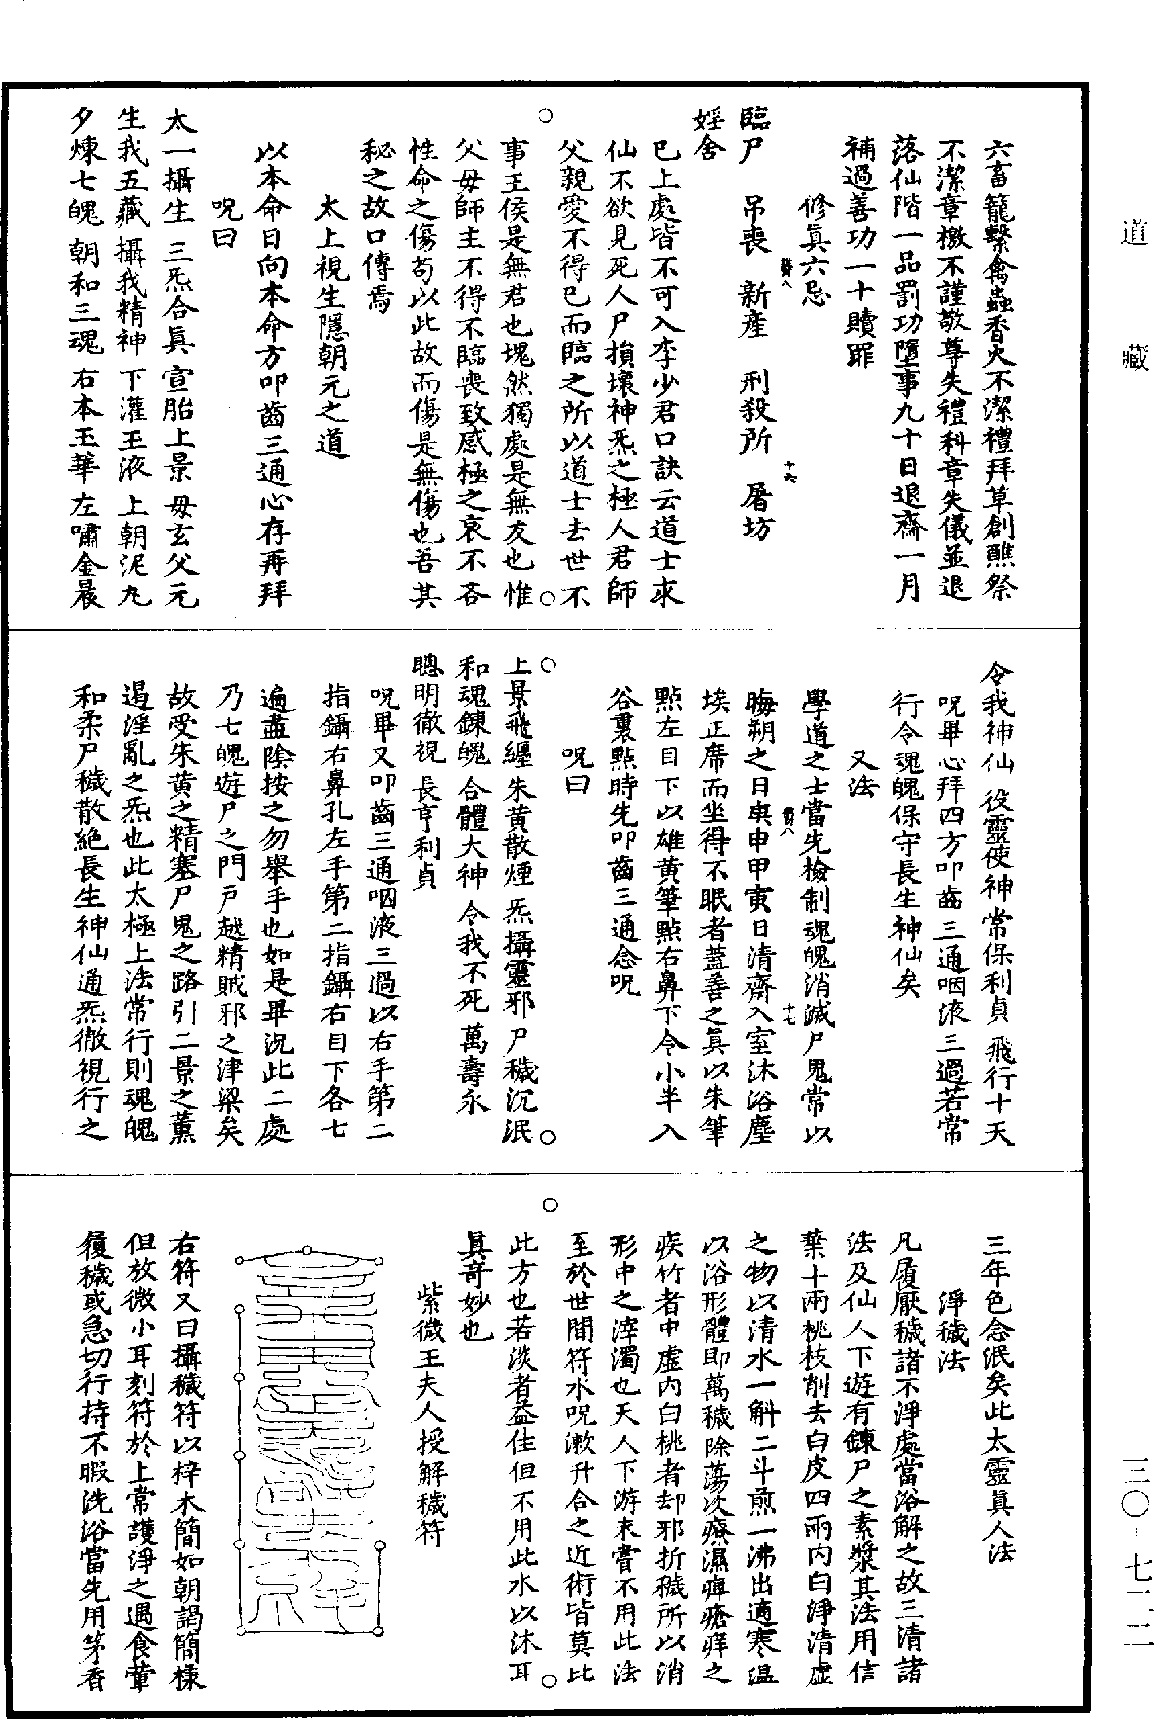 道藏
三〇-七一二
六畜籠繫禽蟲香火不潔禮拜草創醮祭
不潔章檄不謹敬尊失禮科章失儀並退
落仙階一品罰功墮事九十日退齋一月
補過善功一十贖罪
修眞六忌
臨尸 吊喪 新產 刑殺所 屠坊
婬舍
已上處皆不可入李少君口訣云道士求
仙不欲見死人尸損壞神炁之極人君師
父親愛不得已而臨之所以道士去世不
事王侯是無君也塊然獨處是無友也惟
父母師主不得不臨喪致感極之哀不吝
性命之傷苟以此故而傷是無傷也吾其
秘之故口傳焉
太上視生隱朝元之道
以本命日向本命方叩齒三通心存再拜
呪曰
太一攝生 三炁合眞 宣胎上景 毋玄父元
生我五藏 攝我精神 下灌玉液 上朝泥丸
夕煉七魄 朝和三魂 右本玉華 左嘯金晨
令我神仙 役靈使神 常保利貞 飛行十天
呪畢心拜四方叩齒三通咽液三過若常
行令魂魄保守長生神仙矣
又法
學道之士當先檢制魂魄消滅尸鬼常以
晦朔之日庚申甲寅日清齋入室沐浴塵
埃正席而坐得不眠者蓋善之眞以朱筆
點左目下以雄黃筆點右鼻下令小半入
谷裏點時先叩齒三通念呪
呪曰
上景飛纏 朱黃散煙 炁攝靈邪 尸穢沉泯
和魂鍊魄 合體大神 令我不死 萬壽永
聰明徹視 長亨利貞
呪畢又叩齒三通咽液三過以右手第二
指鑷右鼻孔左手第二指鑷右目下各七
遍盡陰按之勿舉手也如是畢況此二處
乃七魄遊尸之門戶越精賊邪之津梁矣
故受朱黃之精塞尸鬼之路引二景之薰
遏淫亂之炁也此太極上法常行則魂魄
和柔尸穢散絕長生神仙通炁徹視行之
三年色念泯矣此太靈眞人法
淨穢法
凡履厭穢諸不淨處當浴解之故三清諸
法及仙人下遊有鍊尸之素漿其法用信
葉十兩桃枝削去白皮四兩內白淨清虛
之物以清水一斛二斗煎一沸出適寒溫
以浴形體即萬穢除蕩次療濕痺瘡痒之
疾竹者中虛內白桃者却邪折穢所以消
形中之滓濁也天人下游末嘗不用此法
至於世間符水呪漱升合之近術皆莫比
此方也若淡者益佳但不用此水以沐耳
眞奇妙也
紫微王夫人授解穢符
右符又曰攝穢符以梓木簡如朝謁簡樣
但放微小耳刻符於上常護淨之過食葷
履穢或急切行持不暇洗浴當先用茅香